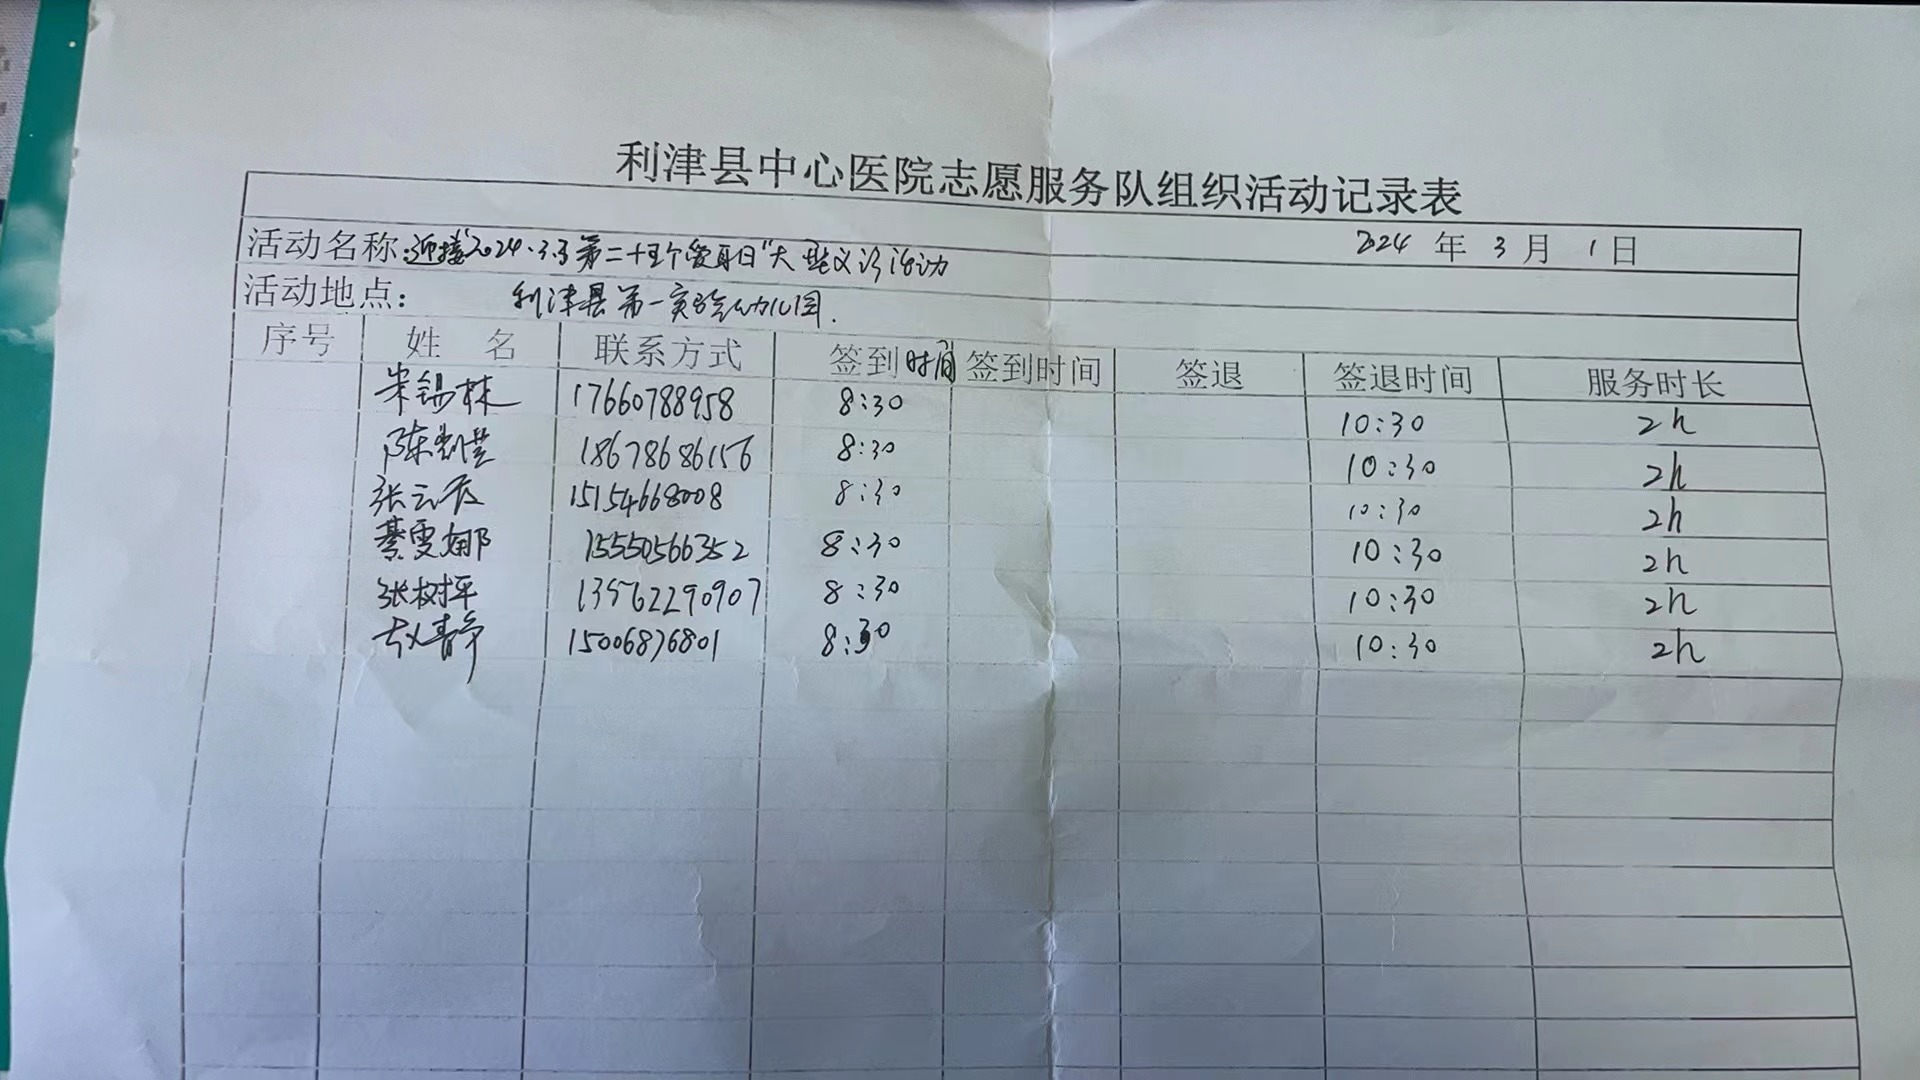 利津县中心医院志愿服务队组织活动记录表
2024 年 3 月 1 日
活动名称:迎接"2024.3.3第二十五个爱耳日"大型义诊活动
活动地点: 利津县第一实验幼儿园.
序号 姓 名 联系方式 签到时间 签到时间 签退 签退时间 服务时长
锡林 17660788958 8:30 10:30 2h
陈 18678686156 8:30 10:30 2h
张云霞 15154668008 8:30 10:30 2h
綦雯娜 15550566352 8:30 10:30 2h
张树平 13562290907 8:30 10:30 2h
赵静 15006876801 8:30 10:30 2h